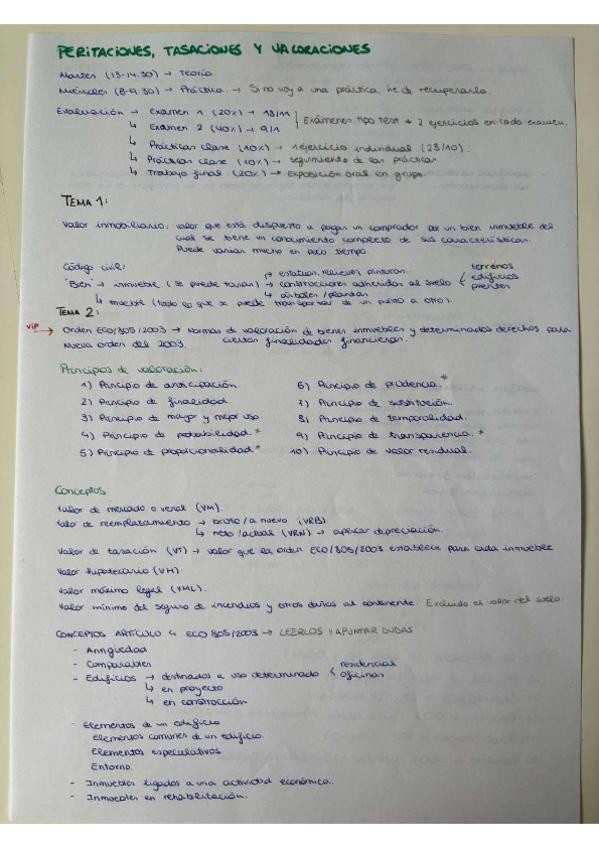 PERITACIONES, TASACIONES Y VALORACIONES
Martes (13-14.30) → Teoría
Miércoles (8-9.30) → Práctica. → Si no voy a una práctica, he de recuperarla.
Evaluación → Examen 1 (20%) → 18/11
↳ Examen 2 (40%) → 9/1
Exámenes tipo test + 2 ejercicios en cada examen.
↳ Prácticas clase (10%) → 1 ejercicio individual (28/10).
↳ Prácticas clase (10%) → seguimiento de las prácticas
↳ Trabajo final (20%) → Exposición oral en grupo.
TEMA 1:
Valor inmobiliario: valor que está dispuesto a pagar un comprador por un bien inmueble del
cual se tiene un conocimiento completo de sus características.
Puede variar mucho en poco tiempo.
Código civil:
↱ estatuas, relieves, pinturas.
"Bien" → inmueble (se puede tasar) → construcciones adheridas al suelo < terrenos
edificios
↳ árboles / plantas
↳ mueble (todo lo que se puede transportar de un punto a otro).
TEMA 2:
VIP → Orden ECO/805/2003 → Normas de valoración de bienes inmuebles y determinados derechos para
Nueva orden del 2003. ciertas finalidades financieras.
Principios de valoración:
1) Principio de anticipación.
2) Principio de finalidad
3) Principio de mayor y mejor uso
4) Principio de probabilidad *
5) Principio de proporcionalidad *
6) Principio de prudencia. *
7) Principio de sustitución.
8) Principio de temporalidad.
9) Principio de transparencia. *
10) Principio de valor residual.
Conceptos
Valor de mercado o venal (VM).
Valor de reemplazamiento → bruto/a nuevo (VRB)
↳ neto/actual (VRN) → aplicar depreciación.
Valor de tasación (VT) → valor que la orden ECO/805/2003 establece para cada inmueble
Valor hipotecario (VH).
Valor máximo legal (VML).
Valor mínimo del seguro de incendios y otros daños al continente. Excluido el valor del suelo.
CONCEPTOS ARTÍCULO 4 ECO 805/2003 → LEERLOS Y APUNTAR DUDAS
- Antigüedad
- Comparables
- Edificios → destinados a uso determinado < residencias
oficinas
↳ en proyecto
↳ en construcción
- Elementos de un edificio
Elementos comunes de un edificio.
Elementos especulativos.
Entorno.
- Inmuebles ligados a una actividad económica.
- Inmuebles en rehabilitación.